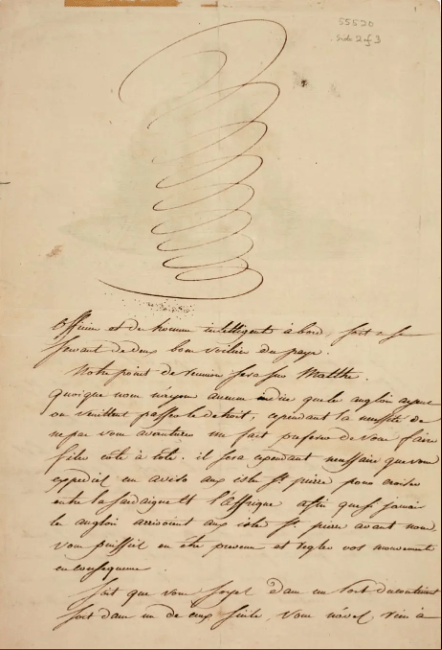 55520
side 2 of 3
Officier et de homme intelligents à bord, soit en se
servant de deux bon voilier du pays.
Notre point de reunion sera sur Malthe.
Quoique nous n'ayons aucun indice que les anglois ayent
ou veuillent passer le detroit, cependant la necessité de
ne pas vous aventurer me fait preferer de vous faire
filer cote à cote. il sera cependant necessaire que vous
expediiez un aviso aux isle St pierre pour croiser
entre la Sardaigne et l'Affrique afin que si jamais
les anglois arrivoient aux isle St. pierre avant nous
vous puissiez en être prevenu et regler vos mouvement
en consequence
Soit que vous soyez dans un Port du continent
soit dans un de ceux Sicile vous n'avez rien à